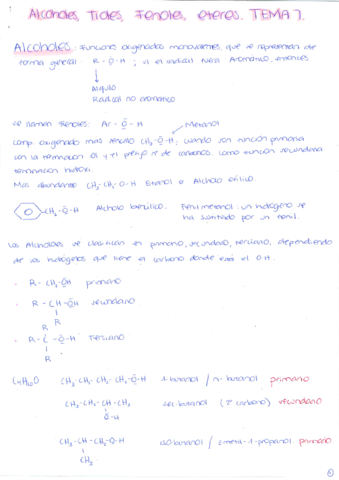 Alcoholes, Tioles, Fenoles, eteres. TEMA 7.
Alcoholes: funciones oxigenados monovalentes, que se representan de
forma general R - Ö - H ; si el radical fuera Aromático, entonces
↓
Alquilo
Radical no aromatico
se llaman fenoles: Ar - Ö - H
Metanol
Comp. oxigenado mas sencillo CH3-Ö-H ; cuando son función primaria
con la terminación ol y el prefijo nº de carbonos. Como función secundaria
terminación hidroxi.
Mas abundantes CH3-CH2-O-H Etanol o Alcohol etílico.
CH2-Ö-H Alcohol bencílico. Fenilmetanol: un hidrógeno se
ha sustituido por un fenil.
Los Alcoholes se clasifican en primario, secundario, terciario, dependiendo
de los hidrógenos que tiene el carbono donde está el O-H.
· R - CH2-ÖH primario
· R - CH-ÖH secundario
R
R
· R - C - Ö-H Terciario
R
C4H10O CH3-CH2-CH2-CH2-Ö-H 1-butanol / n-butanol primario
CH3-CH2-CH-CH3 sec-butanol (2º carbono) secundario
Ö-H
CH3-CH-CH2-Ö-H iso-butanol / 2-metil-1-propanol primario
CH3